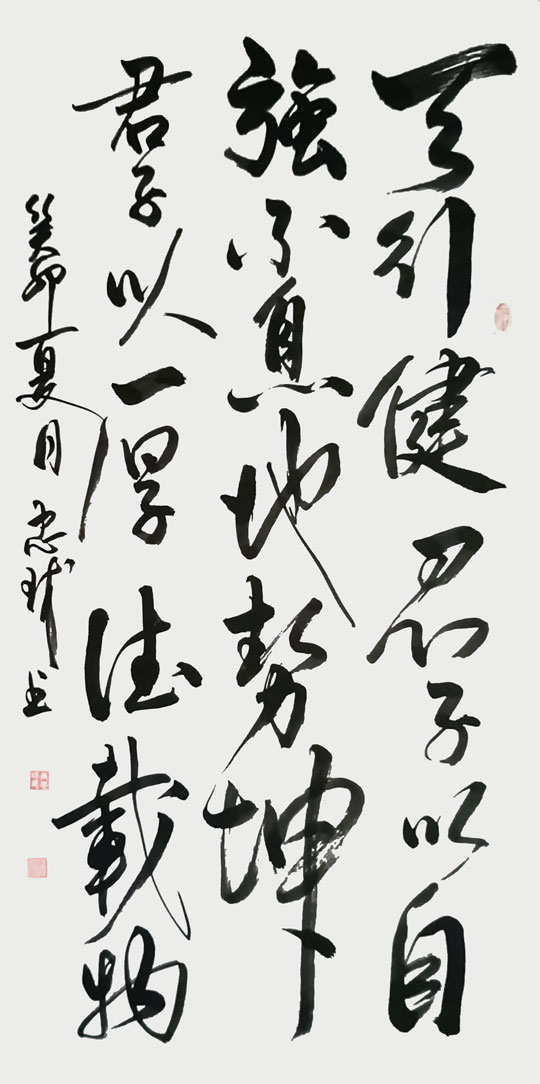 天行健君子以自
強不息地勢坤
君子以厚德載物
癸卯夏月 书